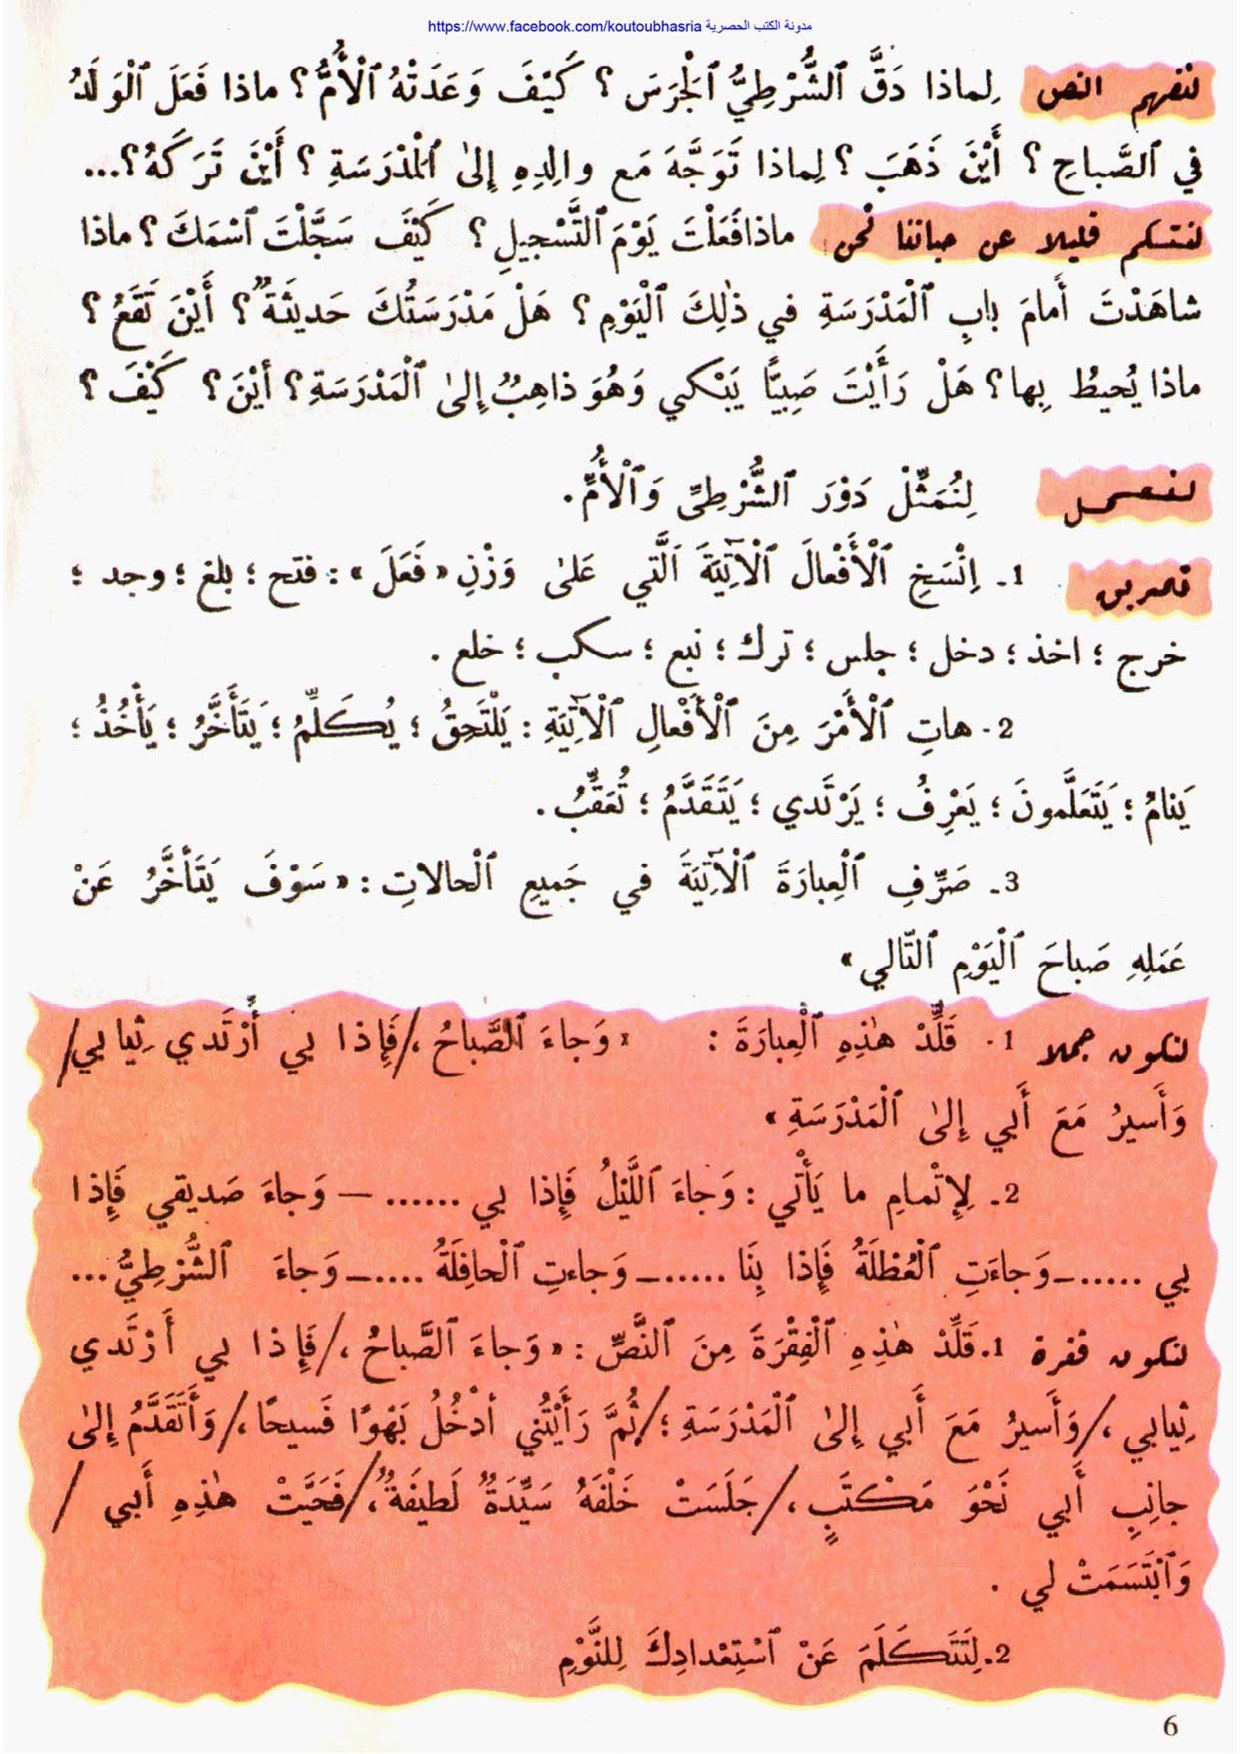 https://www.facebook.com/koutoubhasria مدونة الكتب الحصرية
لنفهم النص لِماذا دَقَّ ٱلشُّرْطِيُّ ٱلْجَرَسَ ؟ كَيْفَ وَعَدَتْهُ ٱلْأُمُّ؟ ماذا فَعَلَ ٱلْوَلَدُ
في ٱلصَّباحِ ؟ أَيْنَ ذَهَبَ ؟ لِماذا تَوَجَّهَ مَع والِدِهِ إِلىٰ ٱلْمَدْرَسَةِ ؟ أَيْنَ تَرَكَهُ؟...
لنتكلم قليلا عن حياتنا نحن ماذا فَعَلْتَ يَوْمَ ٱلتَّسْجيلِ ؟ كَيْفَ سَجَّلْتَ ٱسْمَكَ ؟ ماذا
شاهَدْتَ أَمامَ بابِ ٱلْمَدْرَسَةِ في ذٰلِكَ ٱلْيَوْمِ ؟ هَلْ مَدْرَسَتُكَ حَديثَةٌ ؟ أَيْنَ تَقَعُ ؟
ماذا يُحيطُ بِها؟ هَلْ رَأَيْتَ صَبِيًّا يَبْكي وَهُوَ ذاهِبٌ إِلىٰ ٱلْمَدْرَسَةِ؟ أَيْنَ ؟ كَيْفَ ؟
لنعمل لِنُمَثِّلْ دَوْرَ ٱلشُّرْطِيِّ وَٱلْأُمِّ .
تمرين 1. اِنْسَخِ ٱلْأَفْعالَ ٱلْآتِيَةَ ٱلَّتي عَلىٰ وَزْنِ « فَعَلَ » : فتح ؛ بلغ ؛ وجد ؛
خرج ؛ اخذ ؛ دخل ؛ جلس ؛ ترك ؛ نبع ؛ سكب ؛ خلع .
2. هاتِ ٱلْأَمْرَ مِنَ ٱلْأَفْعالِ ٱلْآتِيَةِ : يَلْتَحِقُ ؛ يُكَلِّمُ ؛ يَتَأَخَّرُ ؛ يَأْخُذُ ؛
يَنامُ ؛ يَتَعَلَّمونَ ؛ يَعْرِفُ ؛ يَرْتَدي ؛ يَتَقَدَّمُ ؛ تُعَقِّبُ .
3. صَرِّفِ ٱلْعِبارَةَ ٱلْآتِيَةَ في جَميعِ ٱلْحالاتِ : « سَوْفَ يَتَأَخَّرُ عَنْ
عَمَلِهِ صَباحَ ٱلْيَوْمِ ٱلتّالي »
لنكون جملا 1. قَلِّدْ هٰذِهِ ٱلْعِبارَةَ : « وَجاءَ ٱلصَّباحُ ،/فَإِذا بي أَرْتَدي ثِيابي/
وَأَسيرُ مَعَ أَبي إِلىٰ ٱلْمَدْرَسَةِ »
2. لِإِتْمامِ ما يَأْتي : وَجاءَ ٱللَّيْلُ فَإِذا بي ...... — وَجاءَ صَديقي فَإِذا
بي ......—وَجاءَتِ ٱلْعُطْلَةُ فَإِذا بِنَا ......—وَجاءتِ ٱلْحافِلَةُ ....—وَجاءَ ٱلشُّرْطِيُّ ...
لنكون فقرة 1. قَلِّدْ هٰذِهِ ٱلْفِقْرَةَ مِنَ ٱلنَّصِّ : « وَجاءَ ٱلصَّباحُ ،/فَإِذا بي أَرْتَدي
ثِيابي ،/وَأَسيرُ مَعَ أَبي إِلىٰ ٱلْمَدْرَسَةِ ؛/ثُمَّ رَأَيْتُني أَدْخُلُ بَهْوًا فَسيحًا،/وَأَتَقَدَّمُ إِلىٰ
جانِبِ أَبي نَحْوَ مَكْتَبٍ ،/جَلَسَتْ خَلْفَهُ سَيِّدَةٌ لَطيفَةٌ،/فَحَيَّتْ هٰذِهِ أَبي /
وَٱبْتَسَمَتْ لي .
2. لِتَتَكَلَمَ عَنْ ٱسْتِعْدادِكَ لِلنَّوْمِ
6